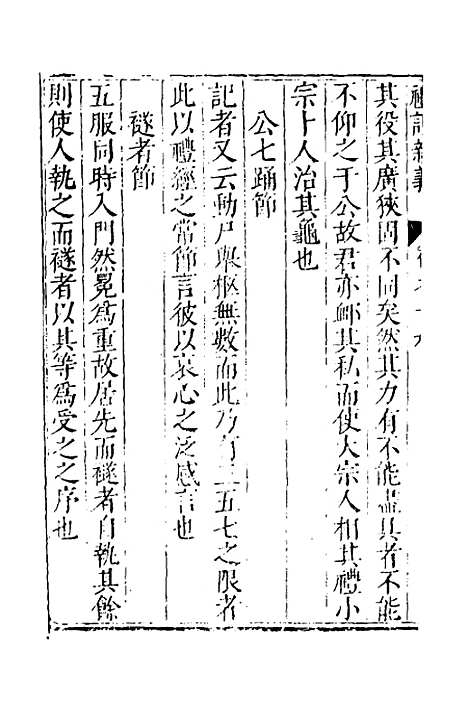 禮記新義 卷之十九
其役其廣狹固不同矣然其力有不能盡具者不能
不仰之于公故君亦鄉其私而使大宗人相其禮小
宗卜人治其龜也
公七踊節
記者又云動尸舉柩無數而此乃有三五七之限者
此以禮經之常節言彼以哀心之泛感言也
襚者節
五服同時入門然冕為重故居先而襚者自執其餘
則使人執之而襚者以其等為受之之序也